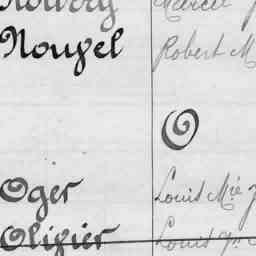 Marcel
Nouvel Robert M
O
Oger Louis Mie J
Olivier Louis